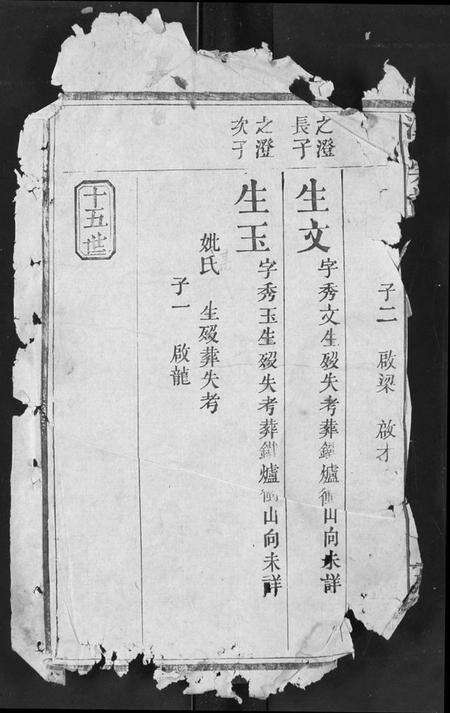 子二 啟梁 啟才
之澄
長子
生文
字秀文生殁失考葬鑼爐衝山向未詳
之澄
次子
生玉
字秀玉生殁失考葬鑼爐衝山向未詳
姚氏 生殁葬失考
子一 啟龍
十五世